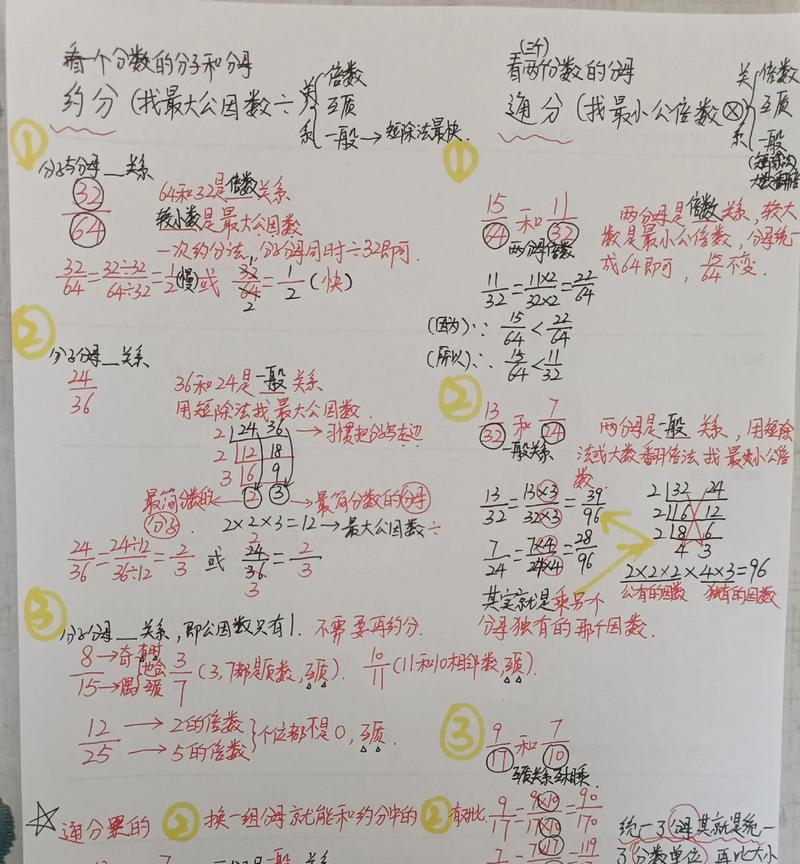 看一个分数的分子和分母
约分(找最大公因数÷)
关系
倍数
互质
一般→短除法最快.
①
分子与分母__关系
32/64
64和32是倍数关系
较小数是最大公因数
一次约分法,分子分母同时÷32即可.
32/64=32÷32/64÷32=1/2(慢)或 32/64=1/2(快)
②
分子分母__关系
24/36
36和24是一般关系
用短除法找最大公因数.
2 24 36 →习惯把分子写左边
2 12 18
3 6 9
最简分数的分子 ←2 3→最简分数的分母
2×2×3=12→最大公因数÷
24/36=24÷12/36÷12=2/3 或 24/36=2/3
③
分子分母__关系,即公因数只有1. 不需要再约分.
8→奇
15→偶
3/7(3,7都是质数,互质). 10/11(11和10相邻数,互质).
12→2的倍数
25→5的倍数
个位都不是0,互质.
☆通分里的②换一组分母就能和约分中的②
(三个)
看两个分数的分母
通分(找最小公倍数⊗)
关系
倍数
互质
一般
①
15/64和11/32
两分母倍数
两分母是倍数关系,较大
数是最小公倍数,分母统一
成64即可,15/64不变.
11/32=11×2/32×2=22/64
(因为)∵ 15/64<22/64
(所以)∴ 15/64<11/32
②
13/32和7/24
一般关系
两分母是一般关系,用短除
法或大数翻倍法找最小公倍
数.
13/32=13×3/32×3=39/96
7/24=7×4/24×4=28/96
2 32 24
2 16 12
2 8 6
4 3
2×2×2×4×3=96
公有的因数 独有的因数
其实就是乘另个
分母独有的那个因数.
③
9/17和7/10
9/17=9×10/17×10=90
统一了分母其实就是统一
了分数单位,再比大小